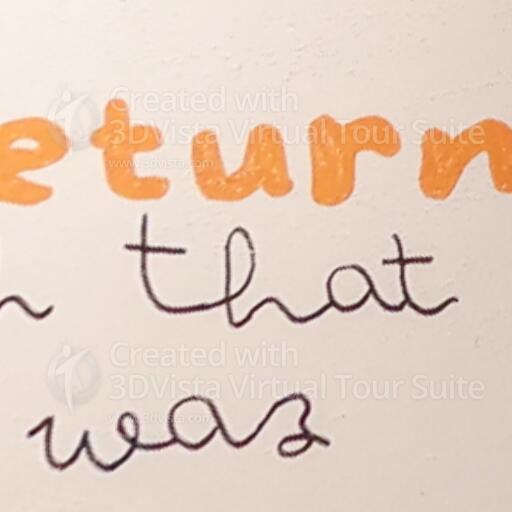 eturn
that
was
Created with
3DVista Virtual Tour Suite
www.3dvista.com
Created with
3DVista Virtual Tour Suite
www.3dvista.com